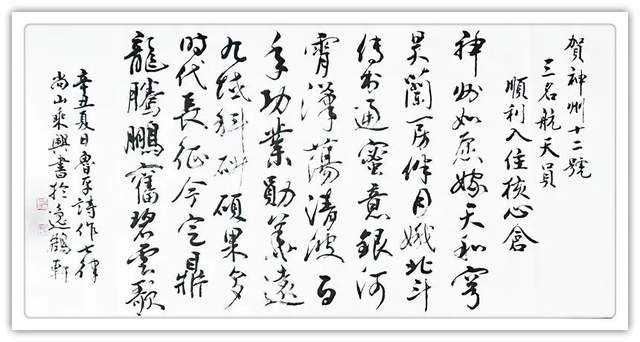 賀神州十二號
三名航天員
順利入住核心倉
神州如愿嫁天和穹
昊蘭房伴月娥北斗
傳書通蜜意銀河
霄漢蕩清波百
年功業勛遠
九域科研碩果多
時代長征今定鼎
龍騰鵬奮碧雲歌
辛丑夏日魯平詩作七律
尚山乘興書於逸鶴軒